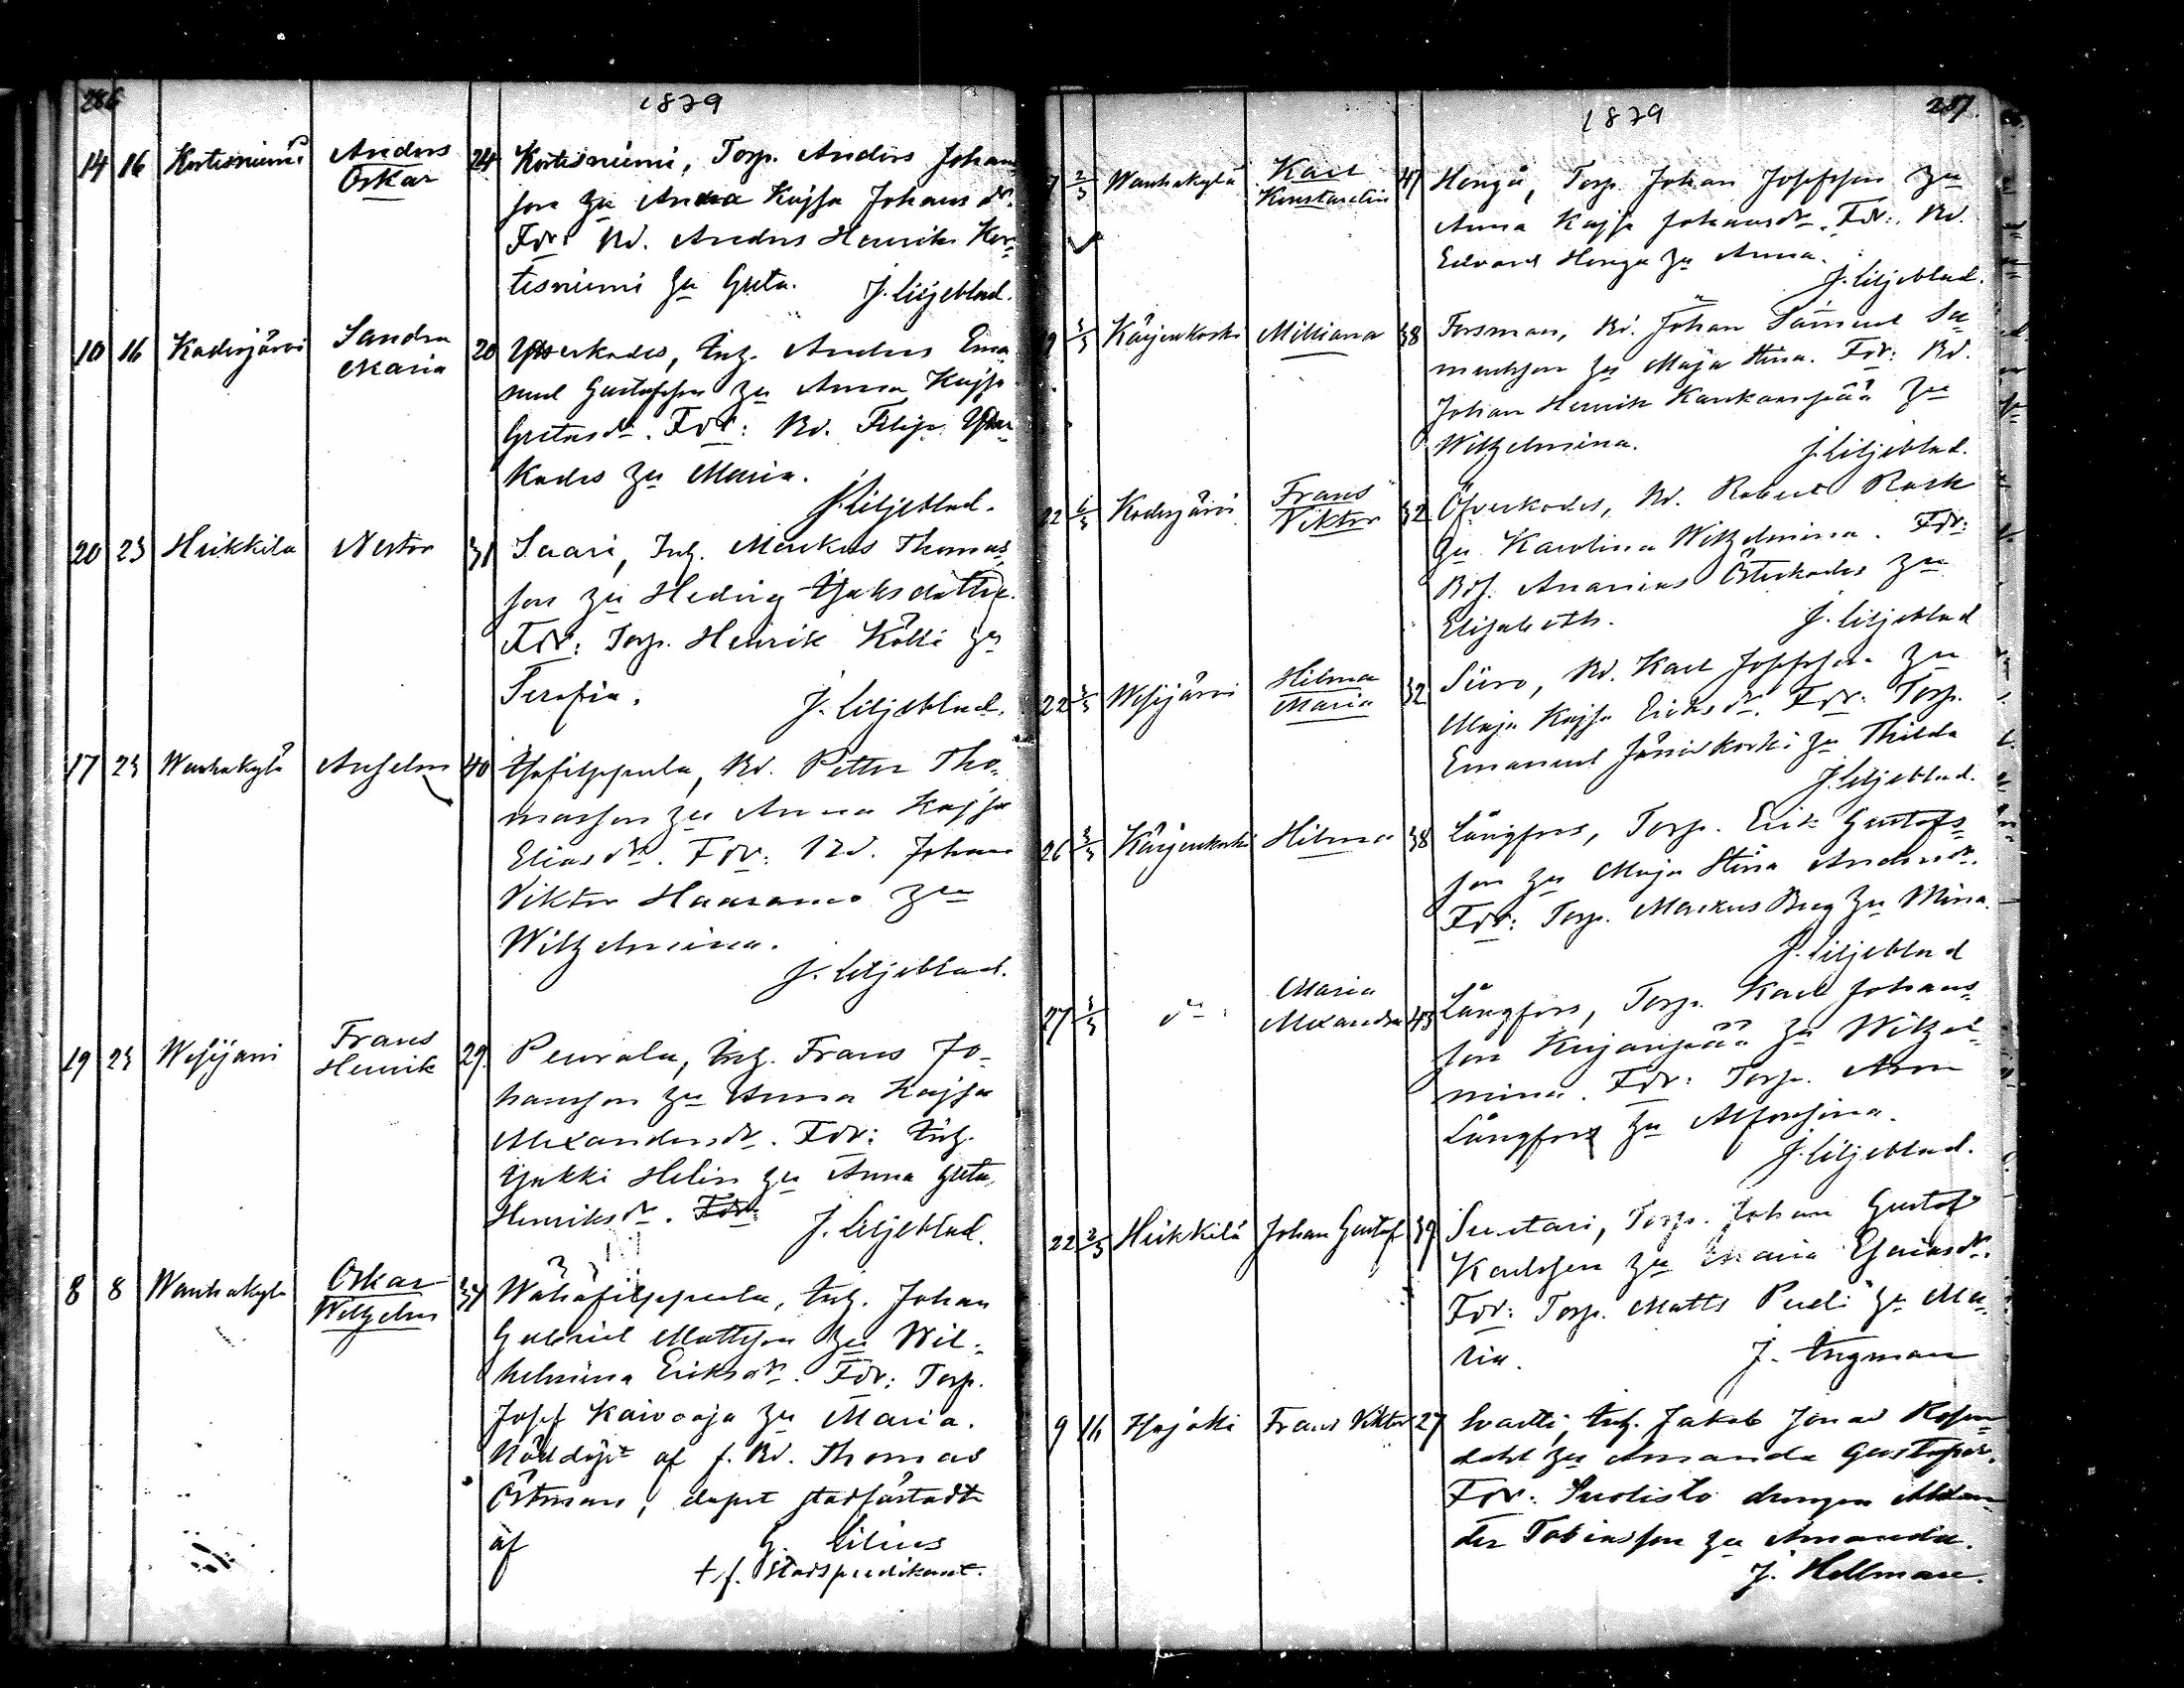 286
1879
14 16 Kortesniemi Anders Oskar 24 Kortesniemi, Torp. Anders Johans
son zu Anna Kajsa Johansdr.
Fdr: Bd. Anders Henrik Kor-
tesniemi zu Greta. J. Liljeblad.
10 16 Kadesjärvi Sandra Maria 20 Ytterkades, Inh. Anders Ema-
nuel Gustafsson zu Anna Kajsa
Gretasdr. Fdr: Bd. Filip
kades zu Maria.
J. Liljeblad.
20 23 Heikkila Nestor 31 Saari, Inh. Markus Thomas
son zu Hedvig Isaksdotter.
Fdr: Torp. Henrik Kölli zu
Serafia. J. Liljeblad.
17 23 Wanhakylä Anselm 40 Isofilppula, Bd. Petter Tho-
masson zu Anna Kajsa
Eliasdr. Fdr: Bd. Johan
Viktor Haaramo zu
Wilhelmina.
J. Liljeblad.
19 23 Wesijärvi Frans Henrik 29. Peurala, Inh. Frans Jo-
hansson zu Anna Kajsa
Alexandersdr. Fdr: Inh.
Isakki Helin zu Anna Greta
Henriksdr. Fdr: J. Liljeblad.
8 8 Wanhakylä Oskar Wilhelm 34 Wähäfilppula, Inh. Johan
Gabriel Mattsson zu Wil-
helmina Eriksdr. Fdr: Torp.
Josef Kaivooja zu Maria.
Nöddöpt af f. Bd. Thomas
Östman, dopet stadfästadt
af G. Lilius
t. f. Stadspredikant.
287.
1879
7 2/3 Wanhakylä Karl Konstantin 47 Honga, Torp. Johan Josefsson zu
Anna Kajsa Johansdr. Fdr: Bd.
Edvard Honga zu Anna.
J. Liljeblad.
19 3/3 Kärjenkoski Milliana 38 Forsman, Bd. Johan Samuel Sa-
muelsson zu Maja Stina. Fdr: Bd.
Johan Henrik Kankaanpää zu
Wilhelmina. J. Liljeblad.
22 6/3 Kodesjärvi Frans Viktor 32 Öfverkodes, Bd. Robert Rask
zu Karolina Wilhelmina. Fdr:
Bds. Ananias Österkodes zu
Elisabeth. J. Liljeblad
22 3/3 Wesijärvi Hilma Maria 32 Siiro, Bd. Karl Josefsson zu
Maja Kajsa Eriksdr. Fdr: Torp.
Emanuel Jänikoski zu Thilda
J. Liljeblad.
26 3/3 Kärjenkoski Hilma 38 Långfors, Torp. Erik Gustafs-
son zu Maja Stina Andersdr.
Fdr: Torp. Markus Berg zu Mina.
J. Liljeblad
27 3/3 do Maria Alexandra 43 Långfors, Torp. Karl Johans-
son Kujanpää zu Wilhel-
mina. Fdr: Torp. Aron
Långfors zu Alfonsina.
J. Liljeblad.
22 2/3 Heikkilä Johan Gustaf 39 Suutari, Torp. Johan Gustaf
Karlsson zu Maria Esaiasdr.
Fdr: Torp. Matts Penti zu Ma-
ria. J. Engman
9 16 Hojoki Frans Viktor 27 Svartti, Inh. Jakob Jonas Rosen-
dahl zu Amanda Gustafsdr.
Fdr: Suolisto drengen Alexan-
der Tobiasson zu Amanda.
J. Hellman.